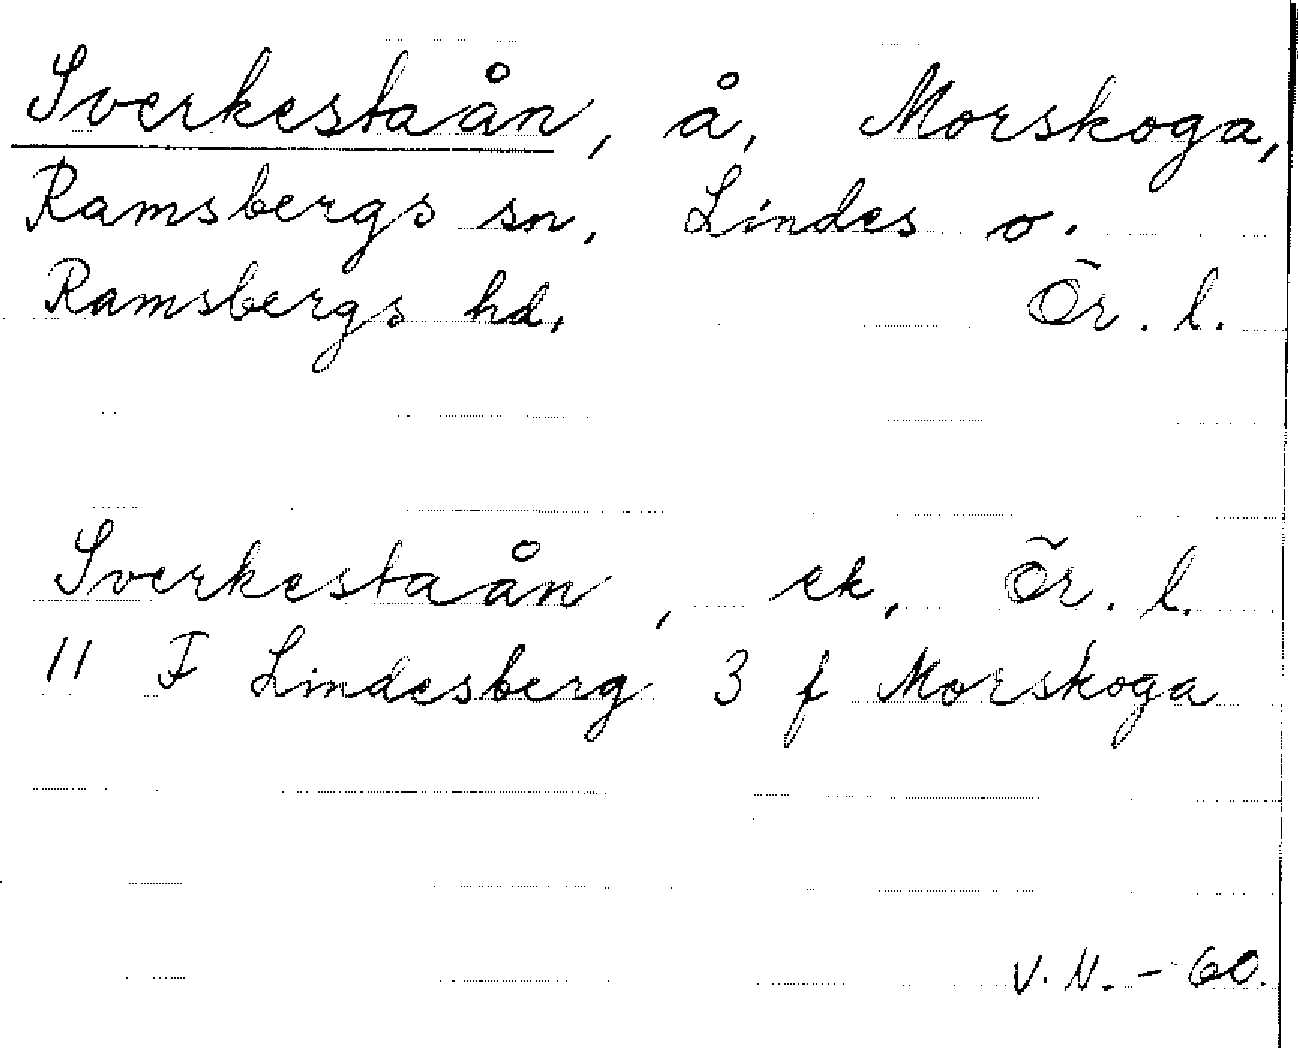 Sverkestaån, å, Morskoga,
Ramsbergs sn, Lindes o.
Ramsbergs hd. Ör. l.
Sverkestaån, ek, Ör. l.
11 F Lindesberg 3 f Morskoga
V.N. - 60.